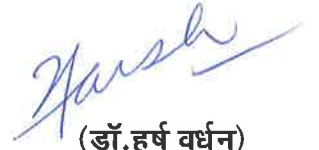 Harsh
(डॉ.हर्ष वर्धन)